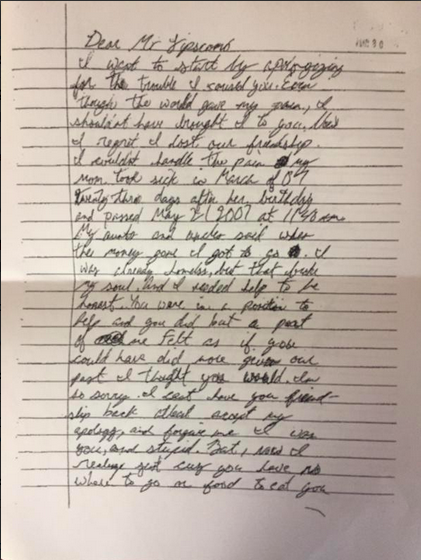 Dear Mr Lipscomb
I want to start by apologizing
for the trouble I caused you. Even
though the world gave my pain, I
shouldn't have brought it to you. Now
I regret I lost our friendship.
I couldn't handle the pain my
mom took sick in March of 07
twenty-three days after her birthday
and passed May 21 2007 at
My aunts and uncles said when
the money gone I got to go. I
was already homeless, but that broke
my soul. And I needed help to be
honest. You were in a position to
help and you did but a part
of me felt as if you
could have did more given our
past I thought you would. Im
so sorry. I cant have you friend-
ship back atleast accept my
apology, and forgive me I was
and stupid. But, now I
realize just cuz you have no
where to go or food to eat you